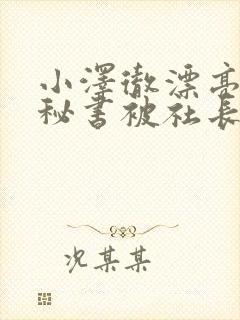 小澤徹漂亮
秘書被社長
况某某